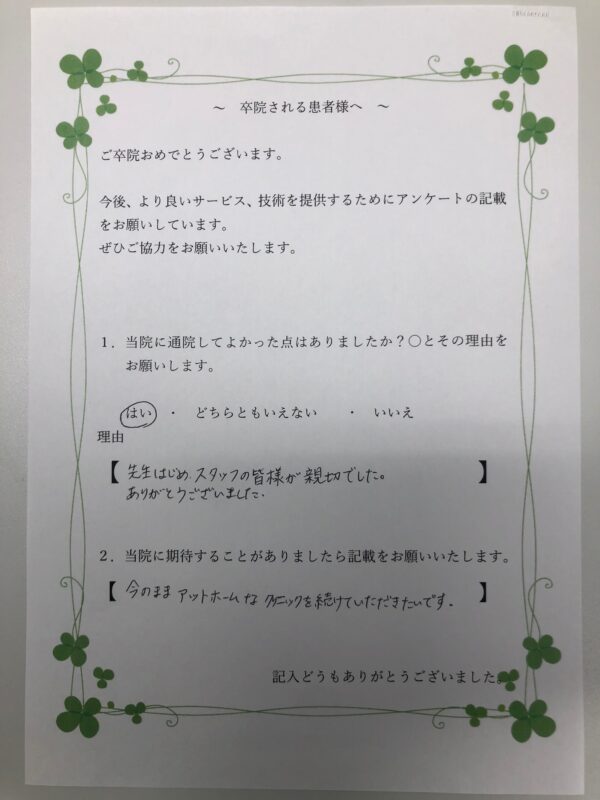 ～ 卒院される患者様へ ～
ご卒院おめでとうございます。
今後、より良いサービス、技術を提供するためにアンケートの記載
をお願いしています。
ぜひご協力をお願いいたします。
1．当院に通院してよかった点はありましたか？〇とその理由を
お願いします。
はい ・ どちらともいえない ・ いいえ
理由
【先生はじめ、スタッフの皆様が親切でした。
ありがとうございました。】
2．当院に期待することがありましたら記載をお願いいたします。
【今のまま アットホームな クリニックを続けていただきたいです。】
記入どうもありがとうございました。